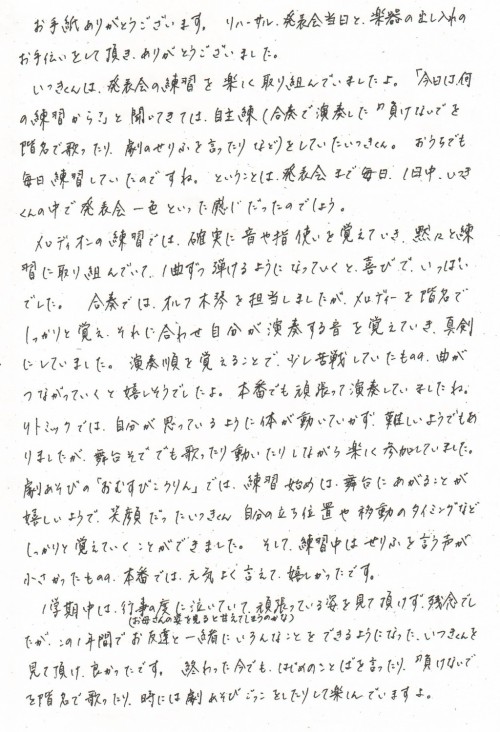 お手紙ありがとうございます。 リハーサル、発表会当日と、楽器の出し入れの
お手伝いをして頂き、ありがとうございました。
いつきくんは、発表会の練習を楽しく取り組んでいましたよ。「今日は何
の練習から?」と聞いてきては、自主練(合奏で演奏した"負けないで"を
階名で歌ったり、劇のせりふを言ったりなど)をしていたいつきくん。 おうちでも
毎日練習していたのですね。 ということは、発表会まで毎日、1日中、いつき
くんの中で発表会一色といった感じだったのでしょう。
メロディオンの練習では、確実に音や指使いを覚えていき、黙々と練
習に取り組んでいて、1曲ずつ弾けるようになっていくと、喜びで、いっぱい
でした。 合奏では、オルフ木琴を担当しましたが、メロディーを階名で
しっかりと覚え、それに合わせ自分が演奏する音を覚えていき、真剣
にしていました。 演奏順を覚えることで、少し苦戦していたものの、曲が
つながっていくと嬉しそうでしたよ。 本番でも頑張って演奏していましたね。
リトミックでは、自分が思っているように体が動いていかず、難しいようでもあ
りましたが、舞台そででも歌ったり動いたりしながら楽しく参加していました。
劇あそびの「おむすびころりん」では、練習始めは、舞台にあがることが
嬉しいようで、笑顔だったいつきくん。自分の立ち位置や移動のタイミングなど
しっかりと覚えていくことができました。 そして、練習中はせりふを言う声が
小さかったものの、本番では、元気よく言えて、嬉しかったです。
1学期中は、行事の度に泣いていて、頑張っている姿を見て頂けず、残念でし
(お母さんの姿を見ると甘えてしまうのかな)
たが、この1年間でお友達と一緒にいろんなことをできるようになった、いつきくんを
見て頂け、良かったです。 終わった今でも、はじめのことばを言ったり、"負けないで"
を階名で歌ったり、時には劇あそびごっこをしたりして楽しんでいますよ。